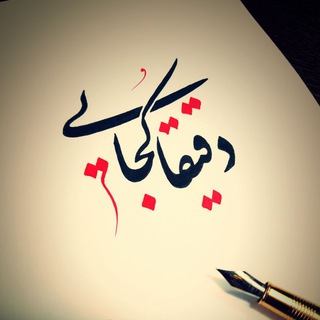 دقیقا کجایی